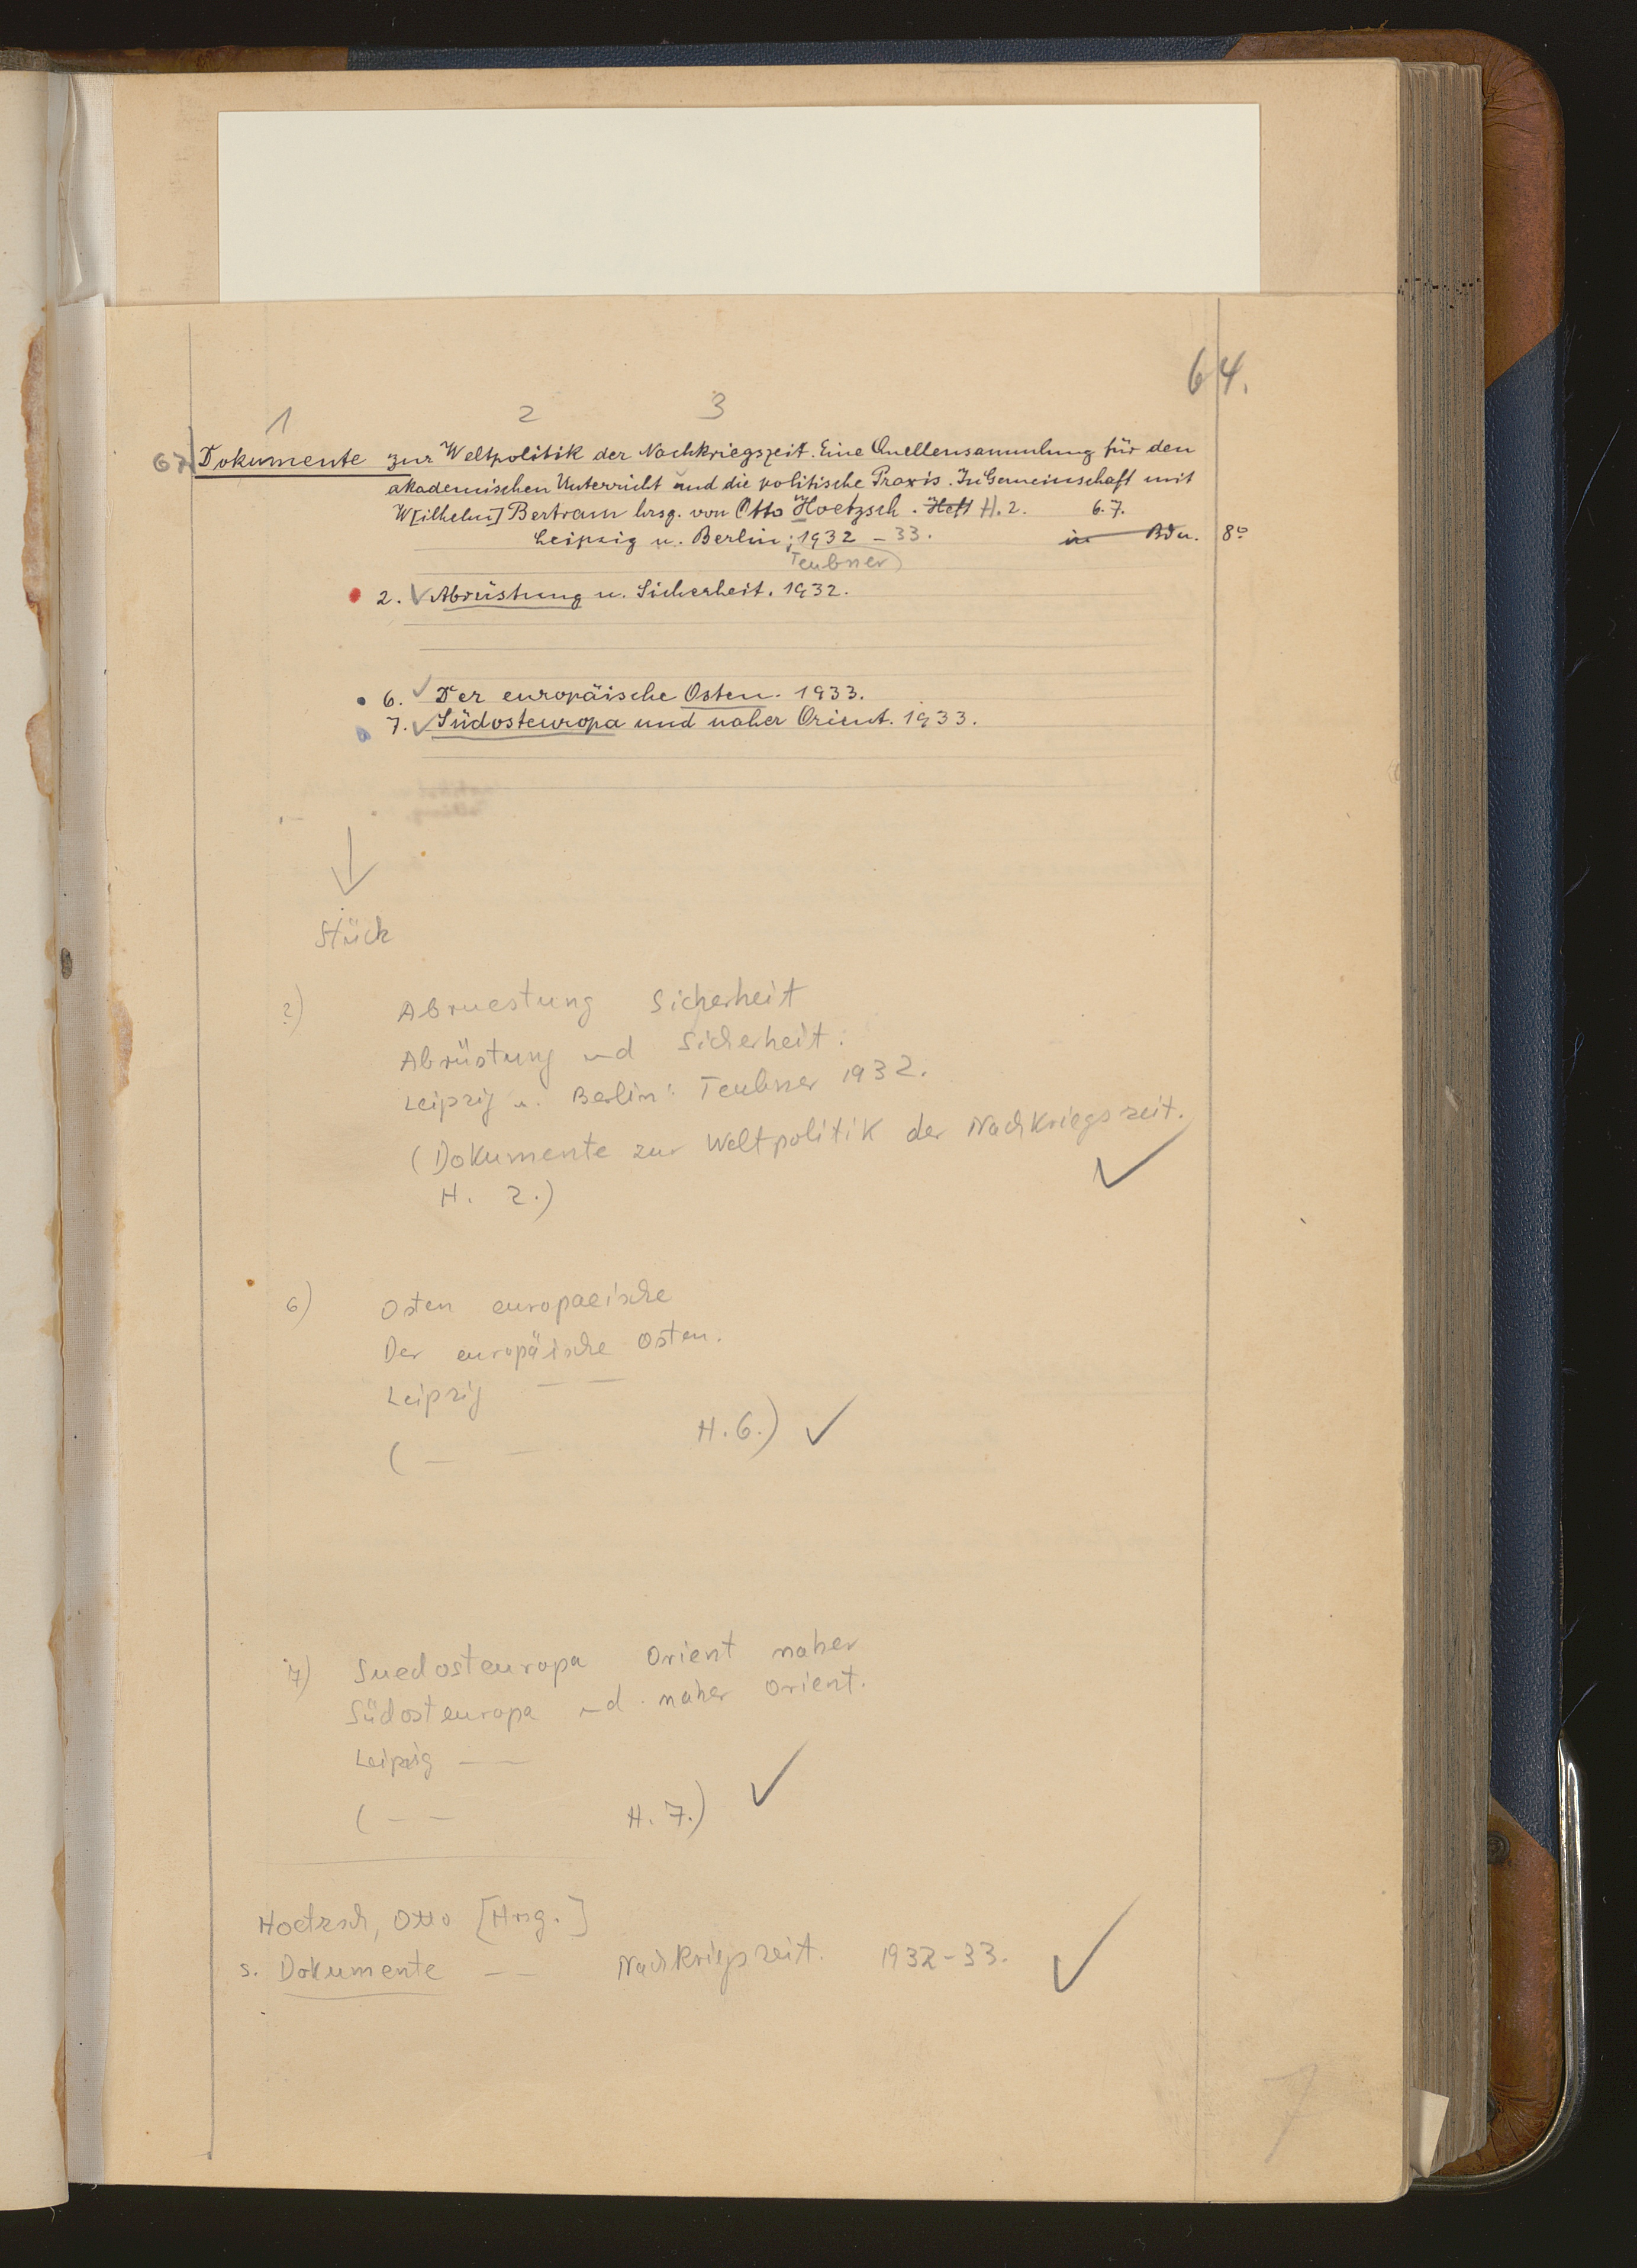 64.
1 2 3
67 Dokumente zur Weltpolitik der Nachkriegszeit. Eine Quellensammlung für den
akademischen Unterricht und die politische Praxis. In Gemeinschaft mit
W[ilhelm] Bertram hrsg. von Otto Hoetzsch. Heft H. 2. 6. 7.
Leipzig u. Berlin; 1932 - 33. in Bdn. 8°
Teubner)
2. ✓ Abrüstung u. Sicherheit. 1932.
6. ✓ Der europäische Osten. 1933.
7. ✓ Südosteuropa und naher Orient. 1933.
↓
Stück
2) Abruestung Sicherheit
Abrüstung und Sicherheit.
Leipzig u. Berlin: Teubner 1932.
(Dokumente zur Weltpolitik der Nachkriegszeit.
H. 2.) ✓
6) Osten europaeische
Der europäische Osten.
Leipzig — —
( — — H. 6.) ✓
7) Suedosteuropa Orient naher
Südosteuropa und naher Orient.
Leipzig — —
( — — H. 7.) ✓
Hoetzsch, Otto [Hrsg.]
s. Dokumente — — Nachkriegszeit. 1932-33. ✓
7